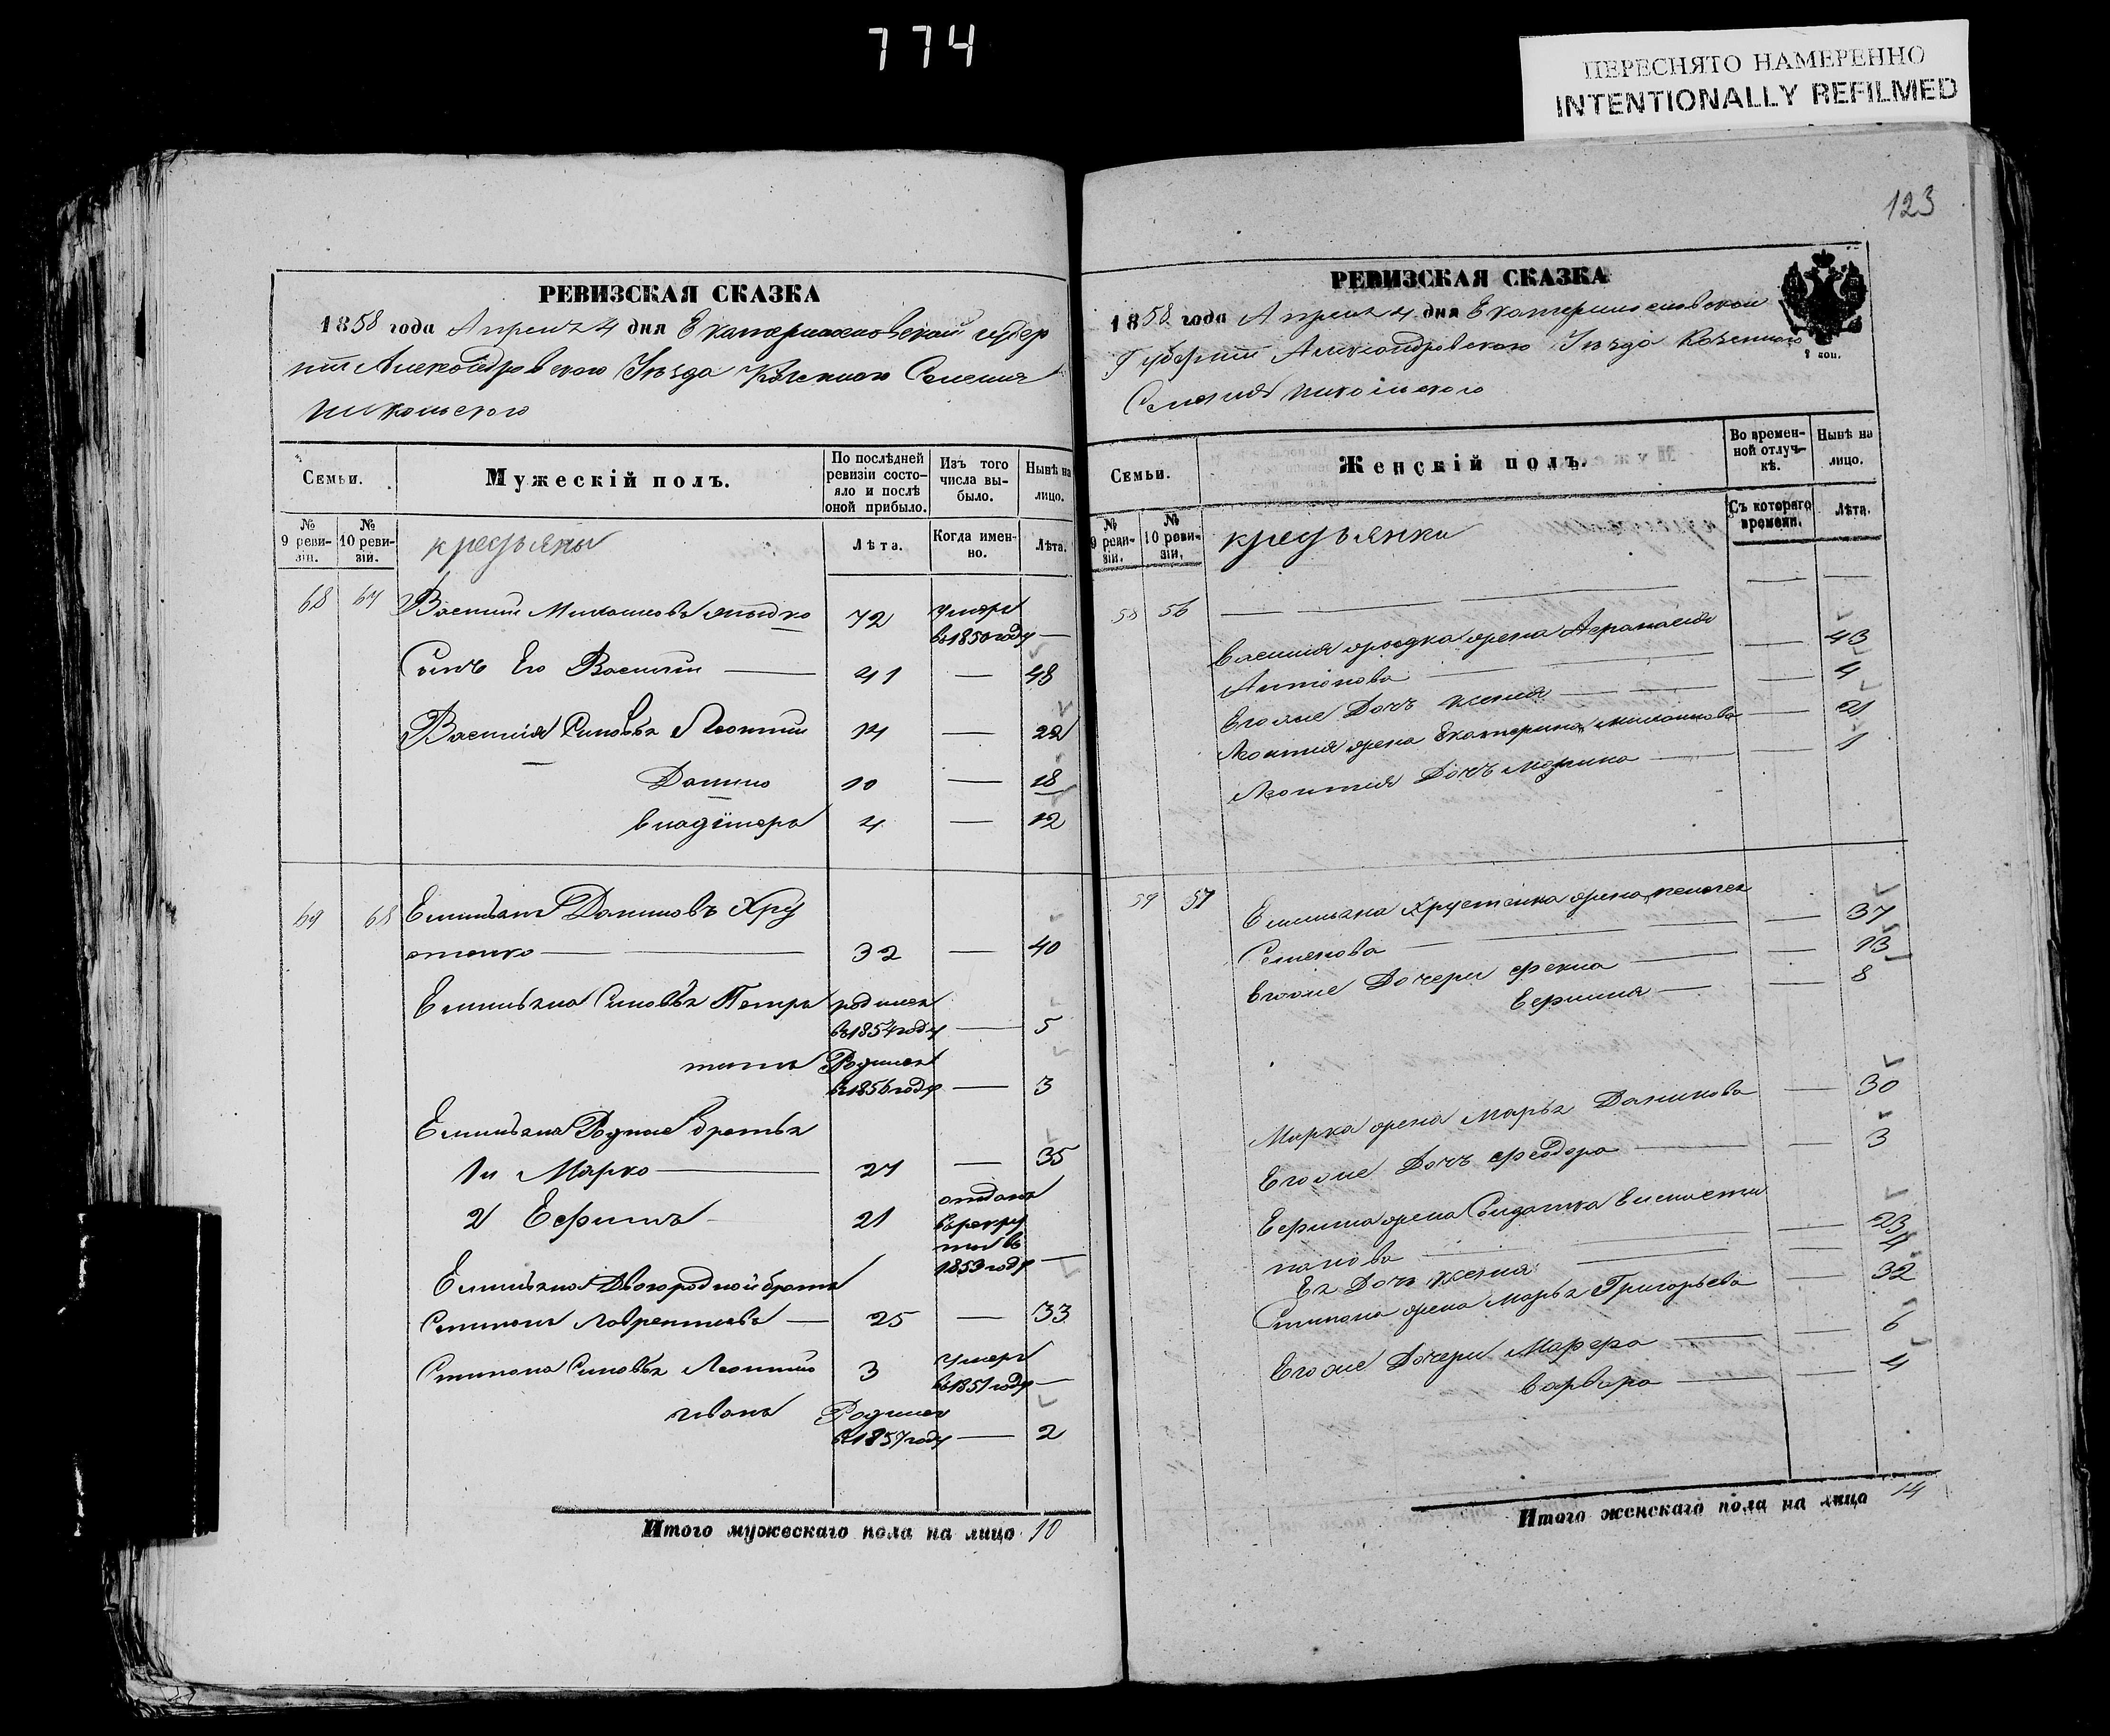 774
ПЕРЕСНЯТО НАМЕРЕННО
INTENTIONALLY REFILMED
РЕВИЗСКАЯ СКАЗКА
1858 года Апреля 4 дня Екатеринославской губер
нии Александровского Уезда Казенного Селения
Никольского
Семьи.
Мужескій полъ.
По послѣдней ревизіи состояло и послѣ оной прибыло.
Изъ того числа выбыло.
Нынѣ на лицо.
№ 9 ревизіи.
№ 10 ревизіи.
крестьяны
Лѣта.
Когда именно.
Лѣта.
68 67 Василий 72 умеръ
в 1850 году —
Сынъ Его Василий — 41 — 48
Василия Сыновья Леонтий 14 — 22
Данило 10 — 18
Владимеръ 4 — 12
69 68 Емильянъ Даниловъ Хру
стенко — 32 — 40
Емильяна Сыновья Петръ родился
в 1854 году — 5
Родился
в 1856 году — 3
Емильяна Родные братья
1й Марко — 27 — 35
2й Ефимъ 21 отданъ
в рекру
ты въ
1853 году —
Емильяна Двоюродной братъ
Степанъ Лаврентьевъ — 25 — 33
Степана Сыновья Леонтий 3 умеръ
в 1851 году —
Иванъ Родился
в 1857 году — 2
Итого мужескаго пола на лицо 10
123
РЕВИЗСКАЯ СКАЗКА
1858 года Апреля 4 дня Екатеринославской
Губернии Александровского Уезда Казенного
Селения Никольского
Семьи.
Женскій полъ.
Во временной отлучкѣ.
Нынѣ на лицо.
№ 9 ревизіи.
№ 10 ревизіи.
крестьянки
Съ котораго времени.
Лѣта.
58 56 — — —
Василия жена Афанасия
Антонова — — 43
Его же Дочь Ксения — — 4
Леонтия жена Екатерина — 21
Леонтия Дочь Марина — — 1
59 57 Емильяна Хрустенка жена
Семенова — — 37
Его же Дочери Фекла — — 13
Евфимия — — 8
Марка жена Марья Данилова — 30
Его же Дочь Феодора — — 3
Ефима жена Солдатка
— — 23
Ея Дочь Ксения — 4
Степана жена Марья Григорьева — 32
Его же Дочери Марфа — — 6
Варвара — — 4
Итого женскаго пола на лицо 14